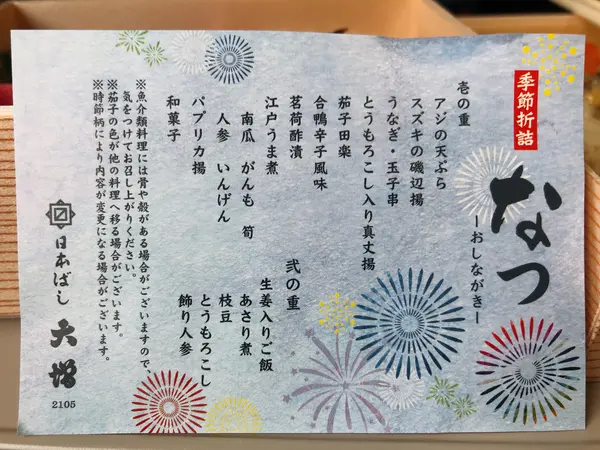 季節折詰
なつ
―おしながき―
壱の重
アジの天ぷら
スズキの磯辺揚
うなぎ・玉子串
とうもろこし入り真丈揚
茄子田楽
合鴨辛子風味
茗荷酢漬
江戸うま煮
南瓜 がんも 筍
人参 いんげん
パプリカ揚
和菓子
弐の重
生姜入りご飯
あさり煮
枝豆
とうもろこし
飾り人参
※魚介類料理には骨や殻がある場合がございますので、
気をつけてお召し上がりください。
※茄子の色が他の料理へ移る場合がございます。
※時節柄により内容が変更になる場合がございます。
日本ばし
大増
2105